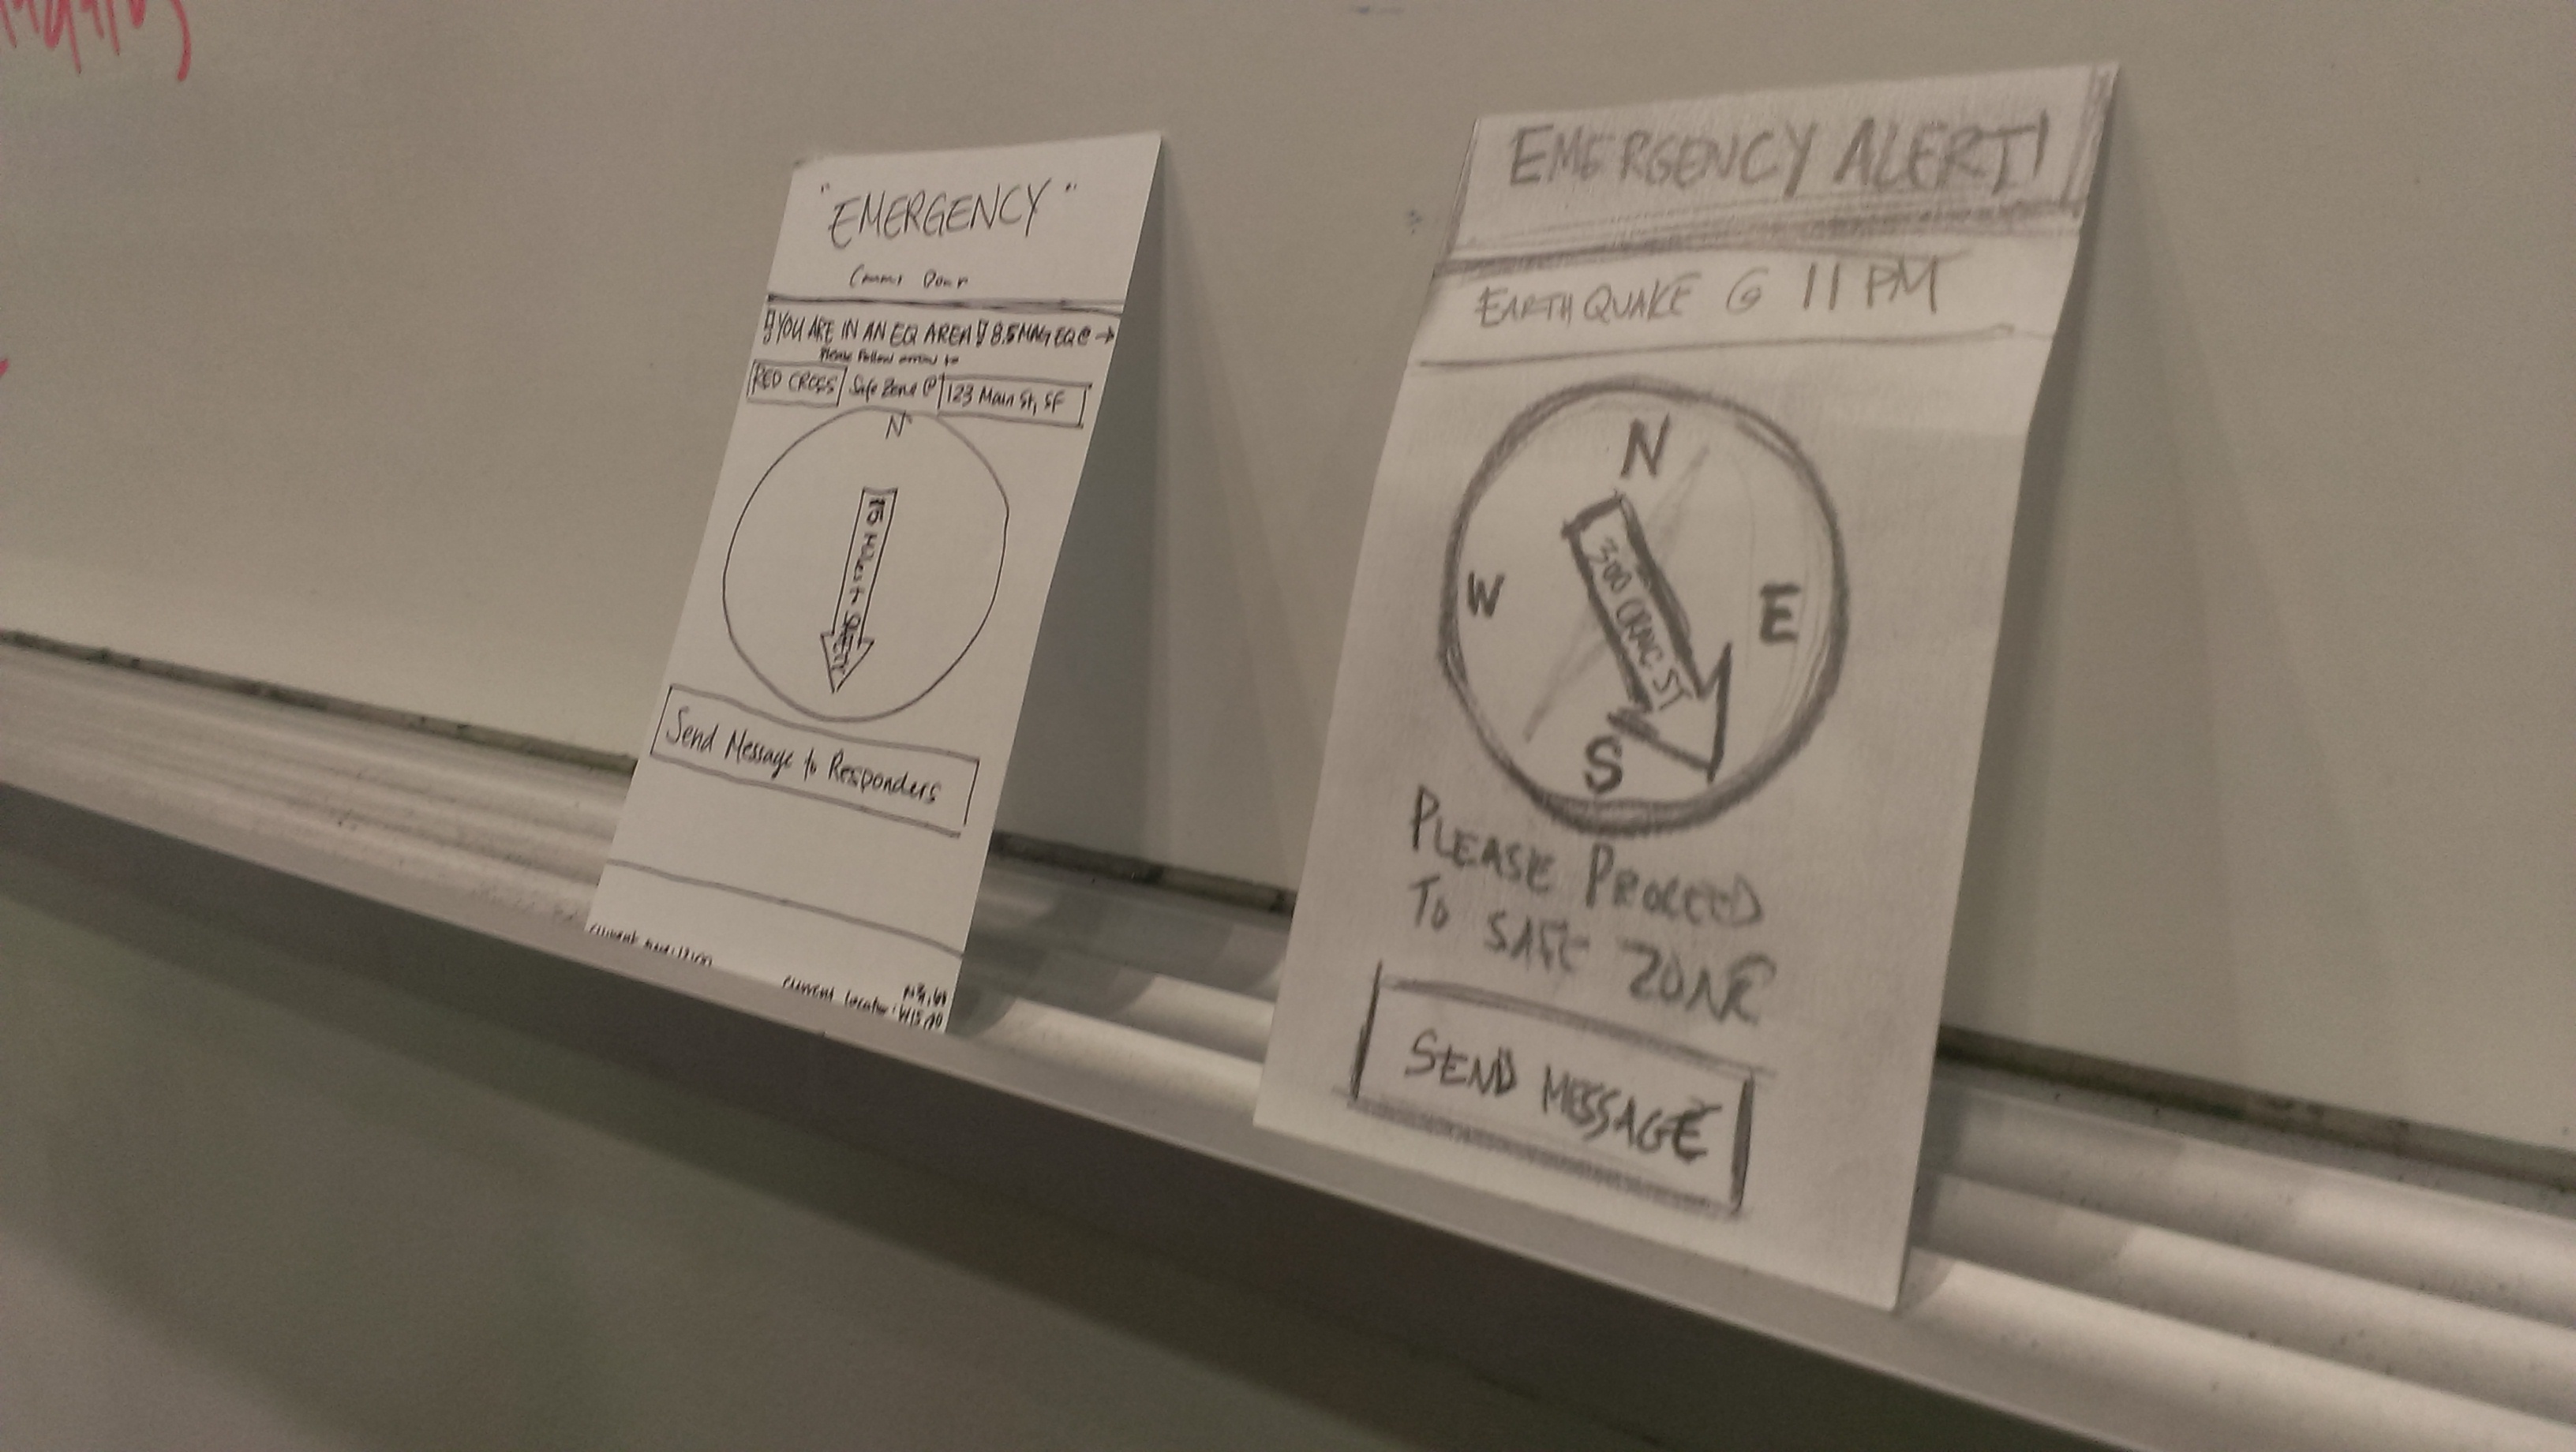 "EMERGENCY"
Comms Down
!! YOU ARE IN AN EQ AREA !! 8.5 MAG EQ @ →
Please follow arrow to
RED CROSS Safe Zone @ 123 Main St, SF
N
15 Miles to
Send Message to Responders
current time: 12:00
current location:
EMERGENCY ALERT!
EARTHQUAKE @ 11 PM
N
W
E
300 ST
S
PLEASE PROCEED
TO SAFE ZONE
SEND MESSAGE